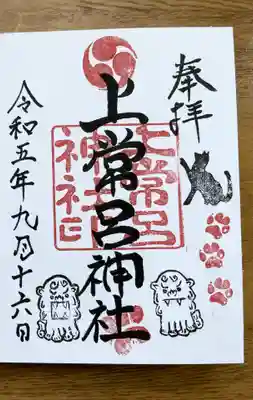 奉拝
上常呂神社
上常呂
神社印
令和五年九月十六日